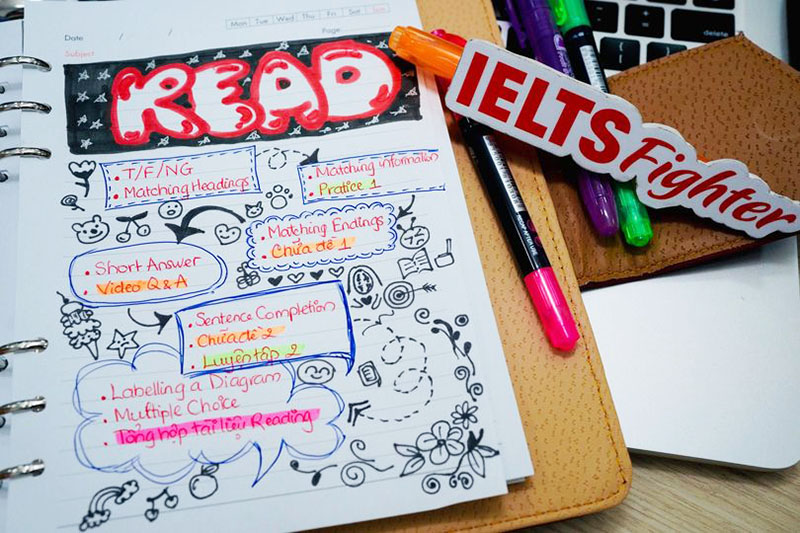 Mon Tue Wed Thu Fri Sat Sun
Date / /
Page:
Subject:
READ
T/F/NG
Matching Headings
Matching information
Pratice 1
Matching Endings
Chữa đề 1
Short Answer
Video Q & A
Sentence Completion
Chữa đề 2
Luyện tập 2
Labelling a Diagram
Multiple Choice
Tổng hợp tài liệu Reading
IELTS
Fighter
delete